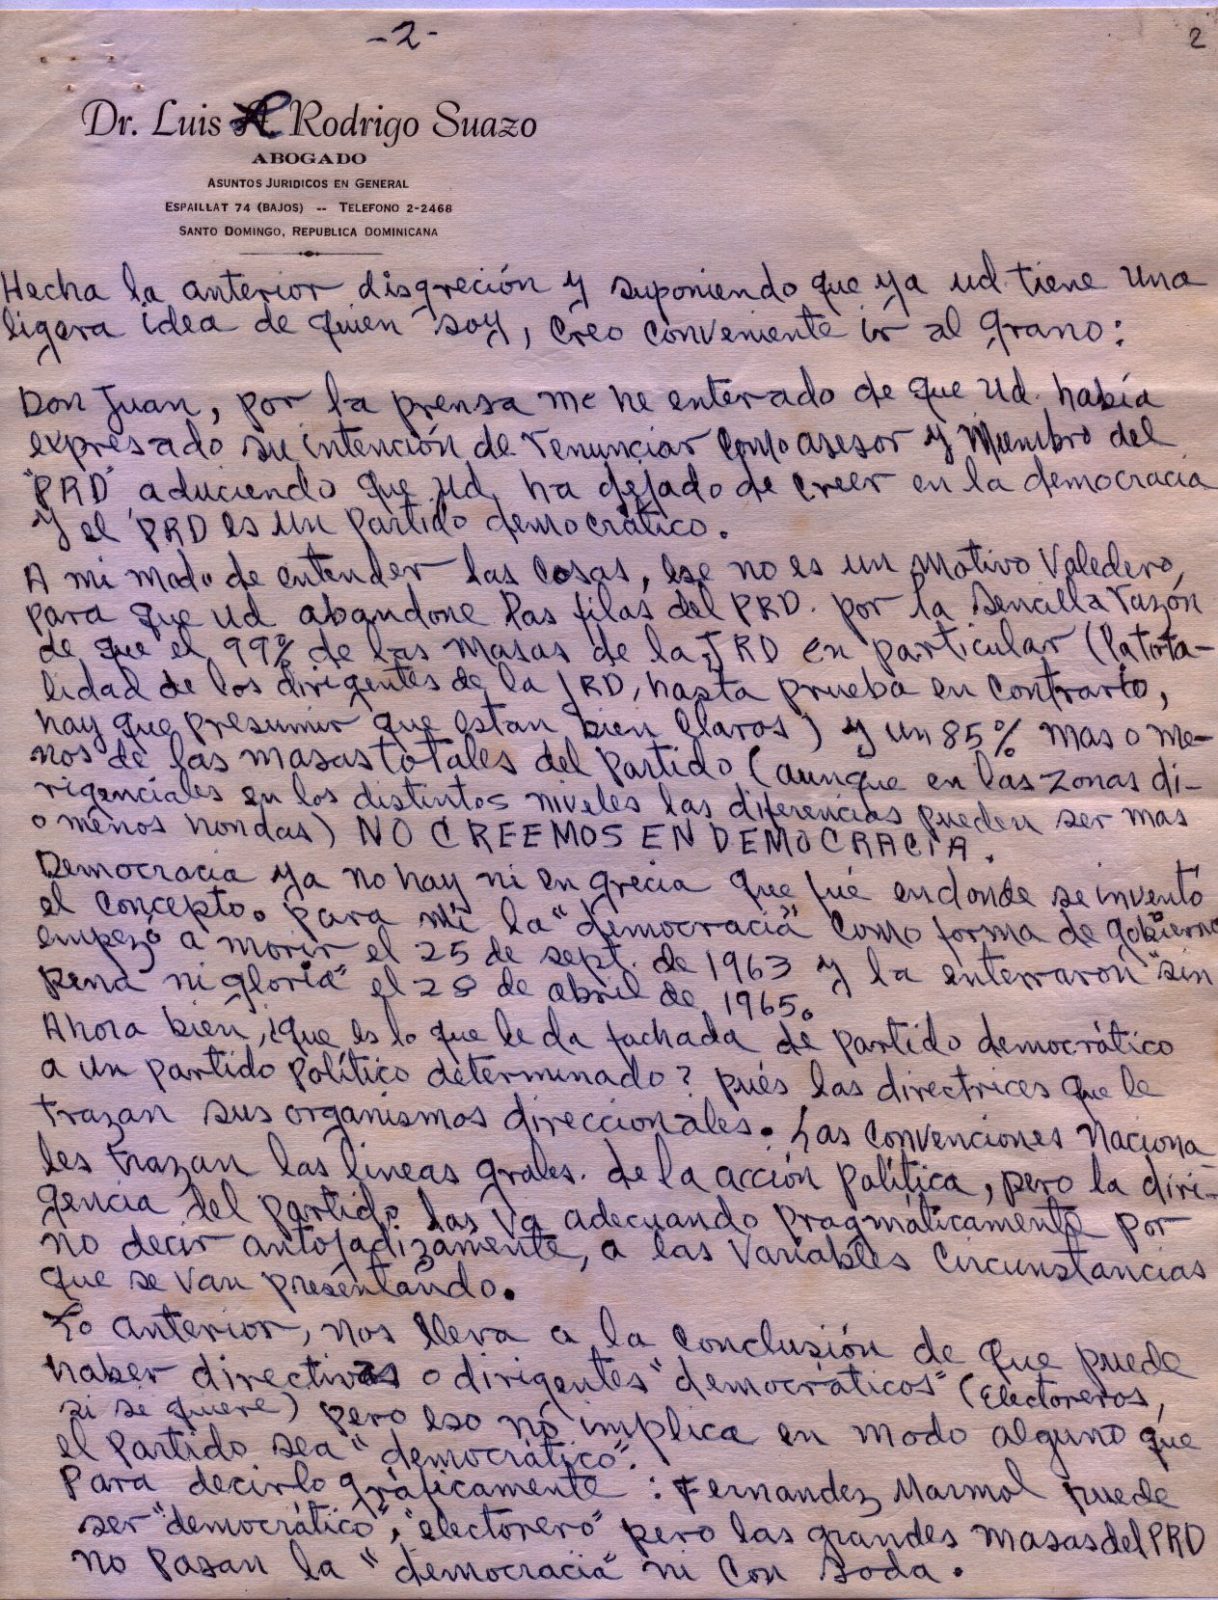 -2-
2
Dr. Luis A. Rodrigo Suazo
ABOGADO
ASUNTOS JURIDICOS EN GENERAL
ESPAILLAT 74 (BAJOS) -- TELEFONO 2-2468
SANTO DOMINGO, REPUBLICA DOMINICANA
Hecha la anterior disgreción y suponiendo que ya ud. tiene una
ligera idea de quien soy, creo conveniente ir al grano:
Don Juan, por la prensa me he enterado de que Ud. había
expresado su intención de renunciar como asesor y Miembro del
"PRD" aduciendo que Ud. ha dejado de creer en la democracia
y el PRD es un partido democrático.
A mi modo de entender las cosas, ese no es un motivo valedero,
para que Ud abandone las filas del PRD. por la sencilla razón
de que el 99% de las masas de la JRD en particular (la tota-
lidad de los dirigentes de la JRD, hasta prueba en contrario,
hay que presumir que estan bien claros) y un 85% mas o me-
nos de las masas totales del partido (aunque en las zonas di-
rigenciales en los distintos niveles las diferencias pueden ser mas
o menos hondas) NO CREEMOS EN DEMOCRACIA.
Democracia ya no hay ni en grecia que fué en donde se inventó
el concepto. para mi la "democracia" como forma de gobierno
empezó a morir el 25 de sept. de 1963 y la enterraron "sin
pena ni gloria" el 28 de abril de 1965.
Ahora bien, ¿que es lo que le da fachada de partido democrático
a un partido político determinado? pués las directrices que le
trazan sus organismos direccionales. Las convenciones naciona
les trazan las lineas grales. de la acción política, pero la diri-
gencia del partido las va adecuando pragmáticamente por
no decir antojadizamente, a las variables circunstancias
que se van presentando.
Lo anterior, nos lleva a la conclusión de que puede
haber directivas o dirigentes "democráticos" (electoreros,
si se quiere) pero eso no implica en modo alguno que
el partido sea "democrático".
Para decirlo gráficamente: Fernandez Marmol puede
ser "democrático", "electorero" pero las grandes masas del PRD
no pasan la "democracia" ni con soda.